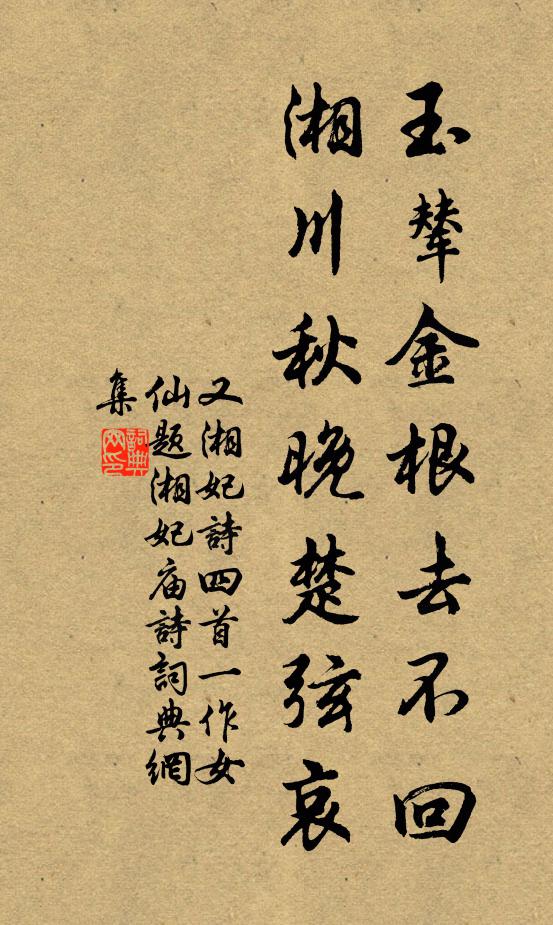 玉辇金根去不回
湘川秋晚楚弦哀
又湘妃詩四首一作女
仙题湘妃庙詩詞典網
集
詞典
网印